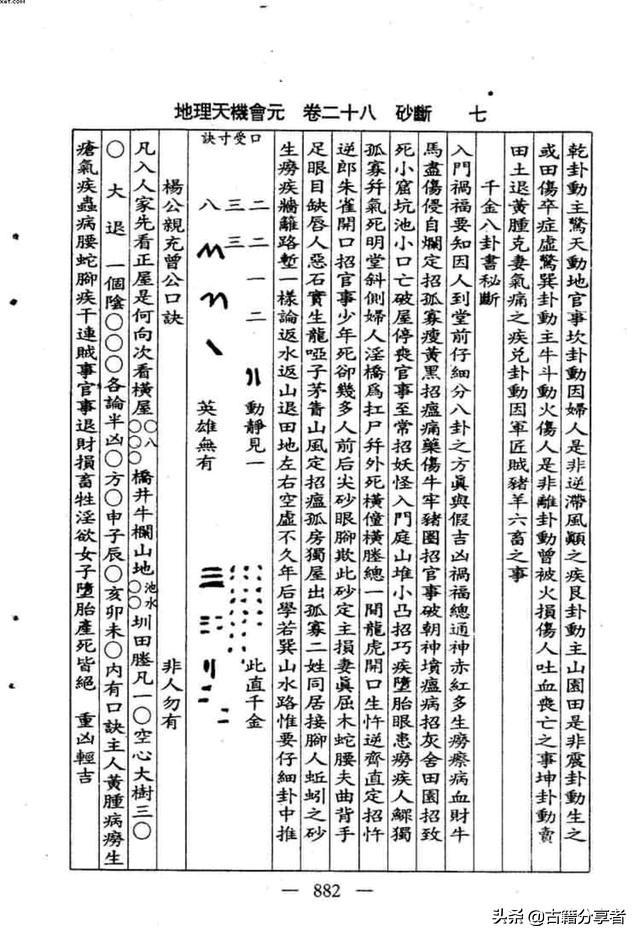 xet.com
地理天機會元　卷二十八　砂斷　七
乾卦動主驚天動地官事坎卦動因婦人是非逆滯風顛之疾艮卦動主山園田是非震卦動生之
或田傷卒症虛驚巽卦動主牛斗動火傷人是非離卦動曾被火損傷人吐血喪亡之事坤卦動賣
田土退黃腫克妻氣痛之疾兌卦動因軍匠賊豬羊六畜之事
千金八卦書秘斷
入門禍福要知因人到堂前仔細分八卦之方眞與假吉凶禍福總通神赤紅多生癆瘵病血財牛
馬盡傷侵自爛定招孤寡瘦黃黑招瘟痛藥傷牛牢豬圈招官事破朝神墳瘟病招灰舍田園招致
死小窟坑池小口亡破屋停喪官事至常招妖怪入門庭山堆小凸招巧疾墮胎眼患癆疾人鰥獨
孤寡幷氣死明堂斜側婦人淫橋爲扛尸幷外死橫僮橫塍總一開龍虎開口生忤逆齊直定招忤
逆郎朱雀開口招官事少年死卻幾多人前后尖砂眼腳欺此砂定主損妻眞屈木蛇腰夫曲背手
足眼目缺唇人惡石實生龍啞子茅薈山風定招瘟孤房獨屋出孤寡二姓同居接腳人蚯蚓之砂
生癆疾牆籬路塹一樣論返水返山退田地左右空虛不久年后學若巽山水路惟要仔細卦中推
口受寸訣
二二一二　動靜見一　此直千金
三三
八　英雄無有　非人勿有
楊公親充曾公口訣
凡入人家先看正屋是何向次看橫屋〇八〇〇橋井牛欄山地池水〇〇圳田塍凡一〇空心大樹三〇
〇大退一個陰〇〇〇各論半凶〇方〇申子辰〇亥卯未〇內有口訣主人黃腫病癆生
瘡氣疾蟲病腰蛇腳疾干連賊事官事退財損畜牲淫欲女子墮胎產死皆絕　重凶輕吉
— 882 —
头条@古籍分享者